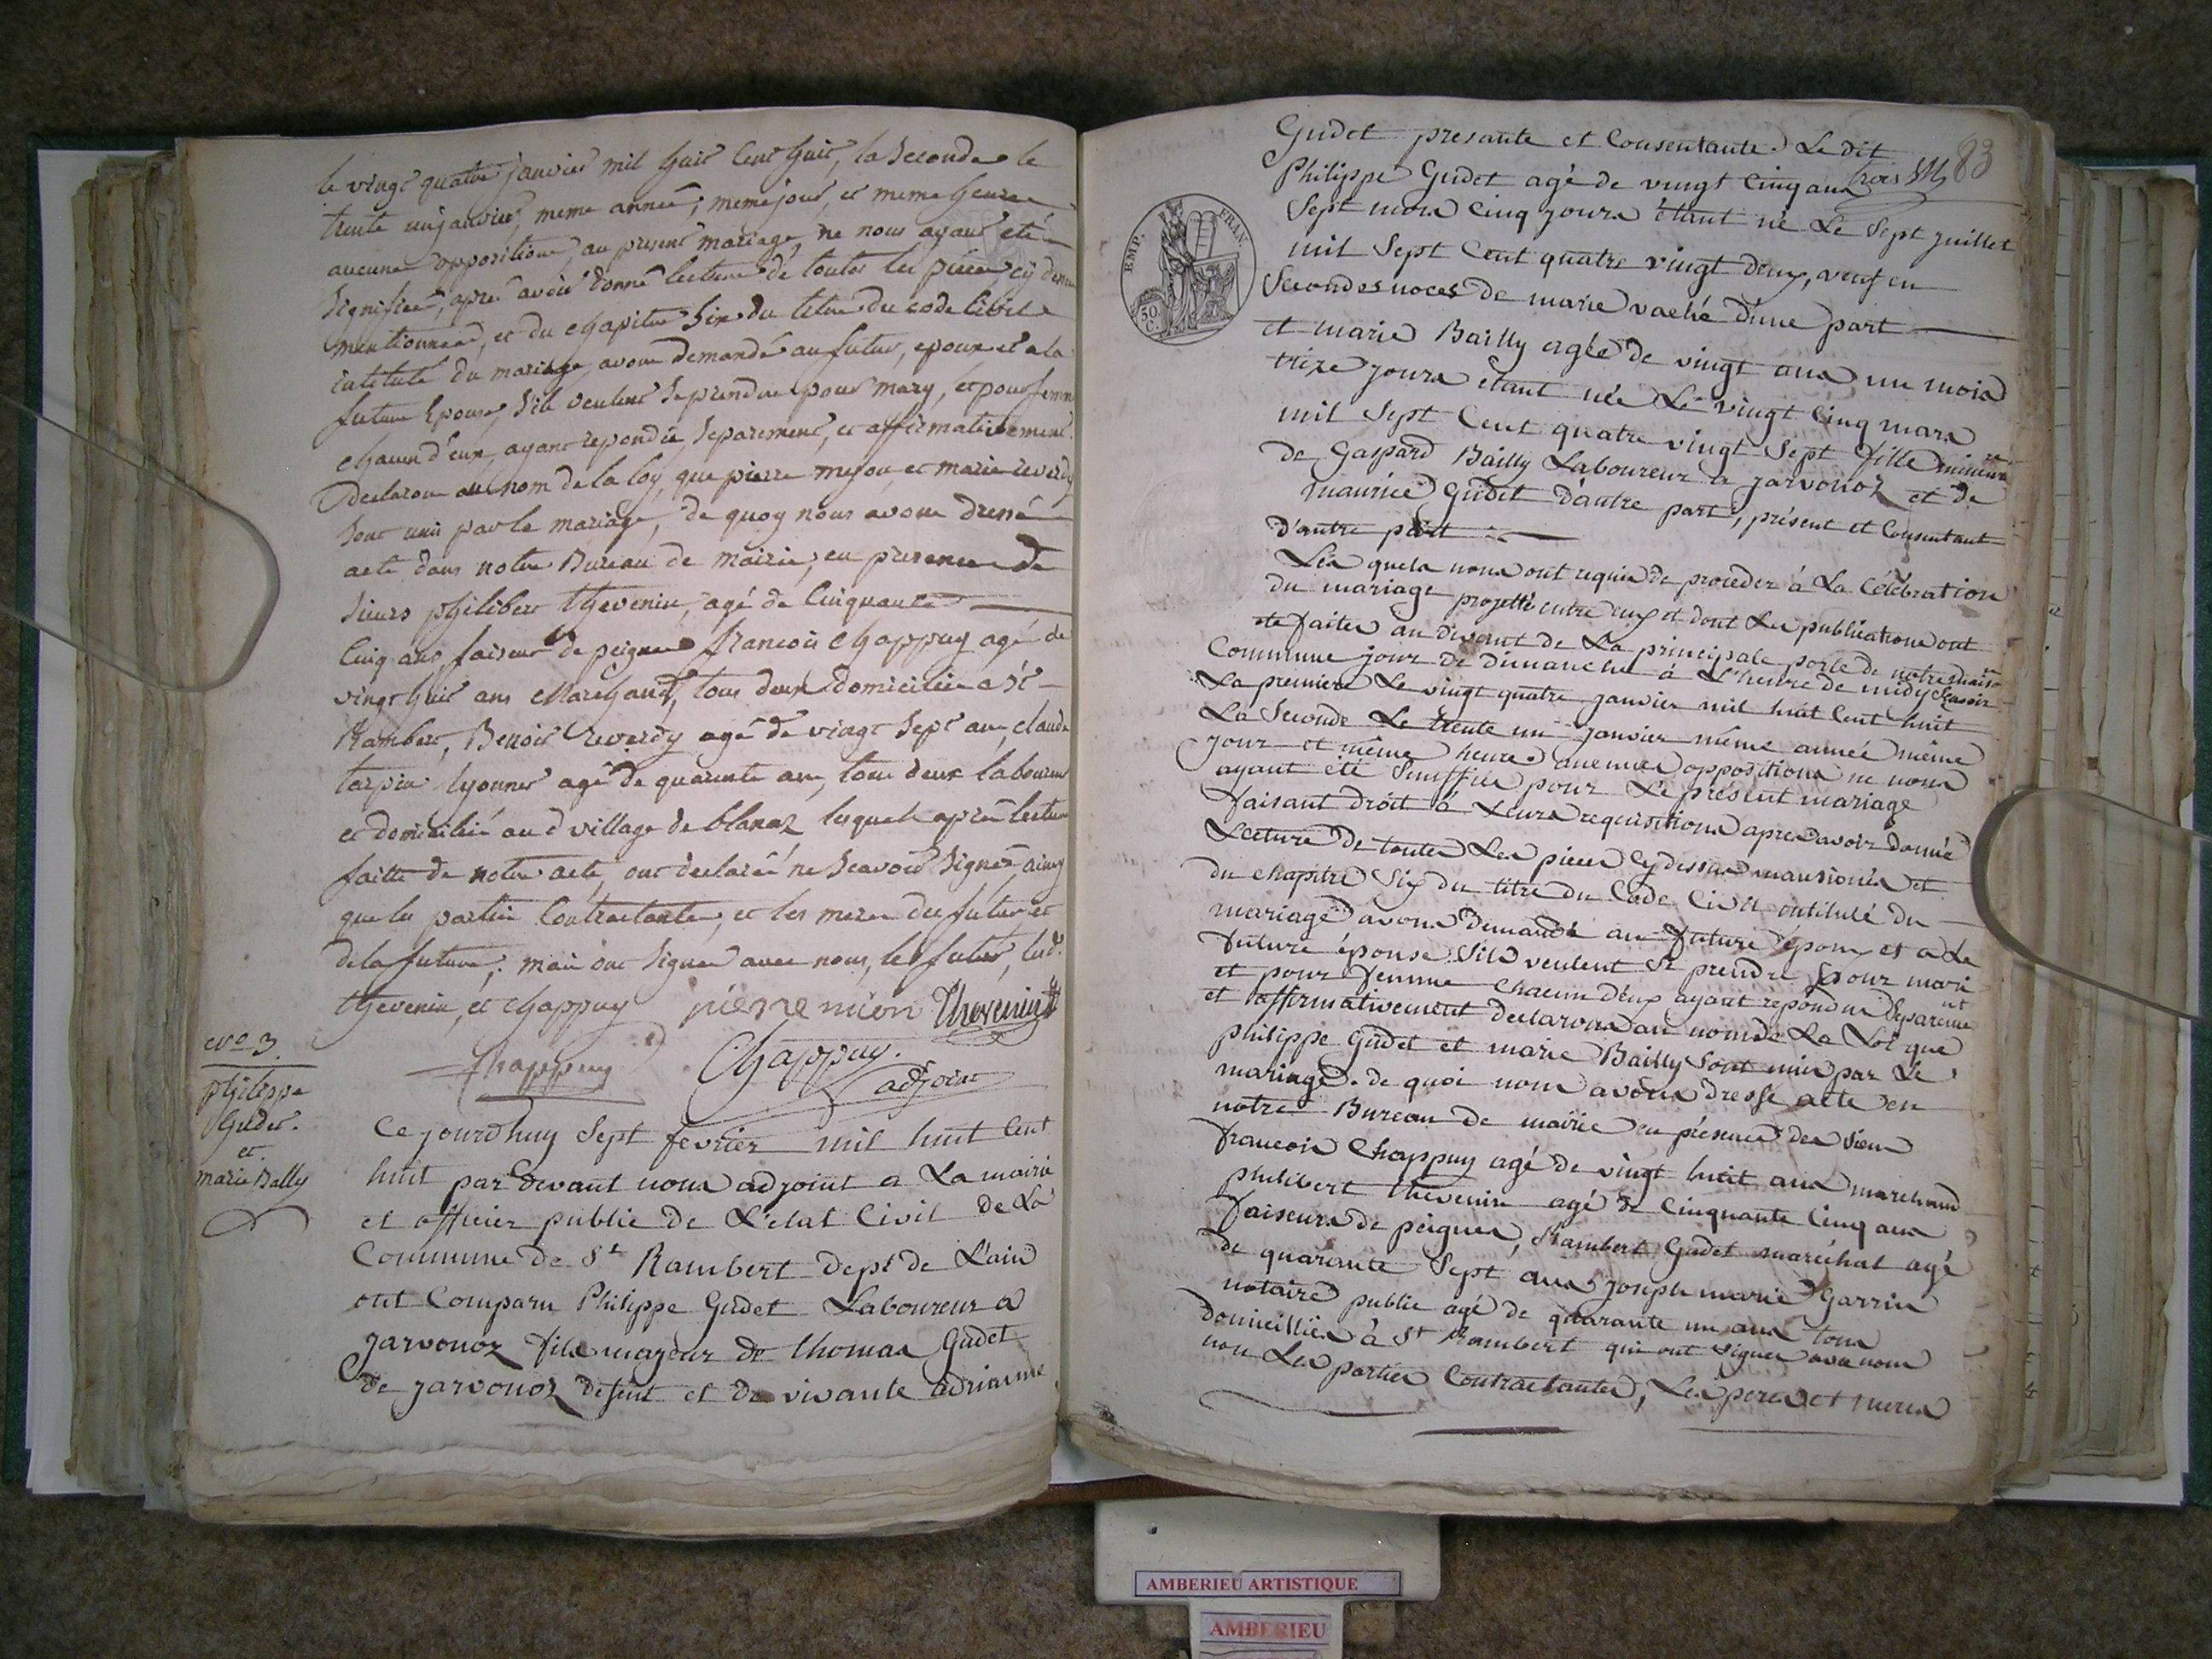 le vingt quatre janvier mil huit cent huit, la seconde le
trente un janvier, meme année, meme jour, et meme heure
aucune opposition, au present mariage, ne nous ayant été
signifiée, apres avoir donné lecture de toutes les pieces cy dessus
mentionnees, et du chapitre six du titre du code civil
intitulé du mariage, avons demandé au futur, epoux et a la
future Epouse, s'ils veulent se prendre pour mary, et pour femme
chacun d'eux, ayant repondu separement, et affirmativement
declarons au nom de la loy, que pierre mejon et marie reverdy
sont unis par le mariage, de quoy nous avons dressé
acte dans notre Bureau de mairie, en presence de
sieurs philibert thevenin, agé de Cinquante
cinq ans, faiseur de peignes francois chappuy agé de
vingt huit ans Marchand, tous deux domiciliés a St
Rambert, Benoit reverdy agé de vingt sept ans, claude
tarpin lyonnet agé de quarante ans, tous deux laboureurs
et domiciliés au d village de blanaz lesquels après lecture
faitte de notre acte, ont declaré ne scavoir signer, ainsy
que les parties Contractantes, et les meres des futur et
de la future, mais ont signé avec nous, le futur, lesd.
thevenin, et chappuy pierre mion Thevenin
Chappuy Chappuy.
adjoint
No 3.
philippe
Gudet.
et
marie Bally
Ce jourdhuy Sept fevrier mil huit Cent
huit par devant nous adjoint a La mairie
et officier public de L'état Civil de La
Commune de St Rambert dept de L'ain
ont Comparu Philippe Gudet Laboureur a
Jarvonoz fils majeur de thomas Gudet
de jarvonoz defunt et de vivante adrianne
Gudet presante et Consentante. Le dit
83
Philippe Gudet agé de vingt Cinq ans
Sept mois Cinq jours étant né Le Sept juillet
mil Sept Cent quatre vingt deux, veuf en
Secondes noces de marie vaché d'une part
et marie Bailly agée de vingt ans un mois
treize jours étant née Le vingt Cinq mars
mil Sept Cent quatre vingt Sept fille mineure
de Gaspard Bailly Laboureur a jarvonoz et de
maurice Gudet d'autre part, présent et Consentant
D'autre part
Les quels nous ont requis de proceder à La Célébration
du mariage projetté entre eux et dont Les publications ont
été faites au devant de La principale porte de notre maison
Commune jour de dimanche à L'heure de midy Scavoir
La premiere Le vingt quatre janvier mil huit Cent huit
La Seconde Le trente un janvier même année même
jour et même heure aucunes oppositions ne nous
ayant été Seniffiée pour Le présent mariage
faisant droit à Leurs requisitions apres avoir donné
Lecture de toutes Les pieces Cy dessus mansionés et
du chapitre Six du titre du Code Civil intitulé du
mariage avons demandé au future époux et a La
future épouse S'ils veulent Se prendre pour mari
et pour femme Chacun d'eux ayant repondu Separemt
et affirmativement declarons au nom de La Loi que
philippe Gudet et marie Bailly Sont unis par Le
mariage. de quoi nous avons dressé acte en
notre Bureau de mairie en présence des Sieurs
francois Chappuy agé de vingt huit ans marchand
philibert thevenin agé de Cinquante Cinq ans
faiseurs de peignes, Rambert Gudet maréchal agé
de quarante Sept ans joseph marie Garrin
notaire public agé de quarante un ans tous
domiciliés à St Rambert qui ont signer avec nous
non Les parties Contractantes, Les peres et meres
EMP. FRAN.
50 C.
AMBERIEU ARTISTIQUE
AMBERIEU